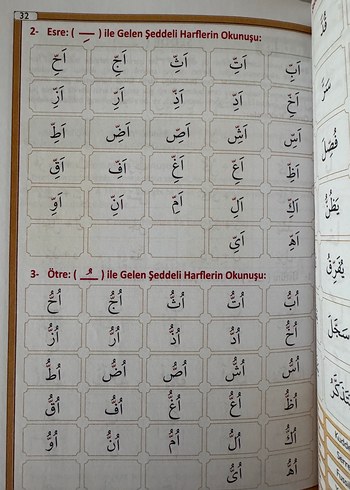 32
2- Esre: ( ــِـ ) ile Gelen Şeddeli Harflerin Okunuşu:
اَبِّ اَتِّ اَثِّ اَجِّ اَحِّ
اَخِّ اَدِّ اَذِّ اَرِّ اَزِّ
اَسِّ اَشِّ اَصِّ اَضِّ اَطِّ
اَظِّ اَعِّ اَغِّ اَفِّ اَقِّ
اَكِّ اَلِّ اَمِّ اَنِّ اَوِّ
اَهِّ اَيِّ
3- Ötre: ( ــُـ ) ile Gelen Şeddeli Harflerin Okunuşu:
اُبُّ اُتُّ اُثُّ اُجُّ اُحُّ
اُخُّ اُدُّ اُذُّ اُرُّ اُزُّ
اُسُّ اُشُّ اُصُّ اُضُّ اُطُّ
اُظُّ اُعُّ اُغُّ اُفُّ اُقُّ
اُكُّ اُلُّ اُمُّ اُنُّ اُوُّ
اُهُّ اُيُّ